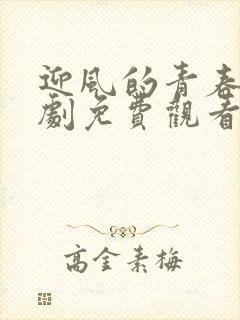 迎風的青春
劇免費觀看
高金素梅